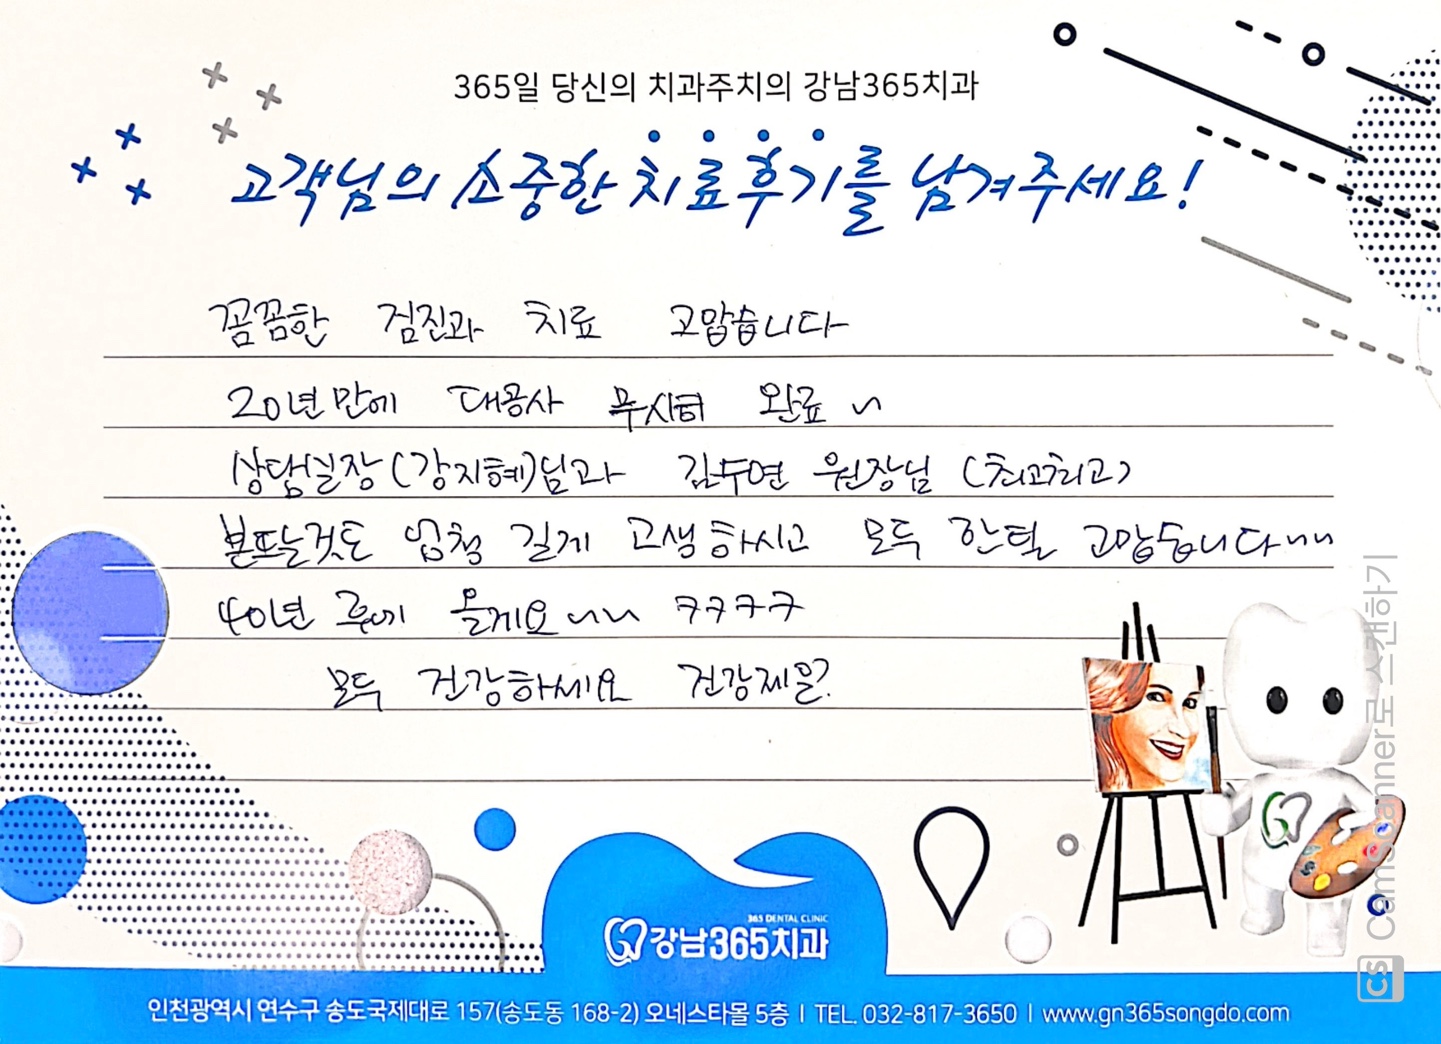 365일 당신의 치과주치의 강남365치과
고객님의 소중한 치료후기를 남겨주세요!
꼼꼼한 검진과 치료 고맙습니다
20년만에 대공사 무사히 완료 ~
상담실장(강지혜)님과 김수연 원장님 (최고최고)
본뜨는것도 엄청 길게 고생하시고 모두 한텔 고맙습니다~~
40년 후에 올게요~~ ㅋㅋㅋㅋ
모두 건강하세요 건강제일?
365 DENTAL CLINIC
강남365치과
인천광역시 연수구 송도국제대로 157(송도동 168-2) 오네스타몰 5층 | TEL. 032-817-3650 | www.gn365songdo.com
CS CamScanner로 스캔하기